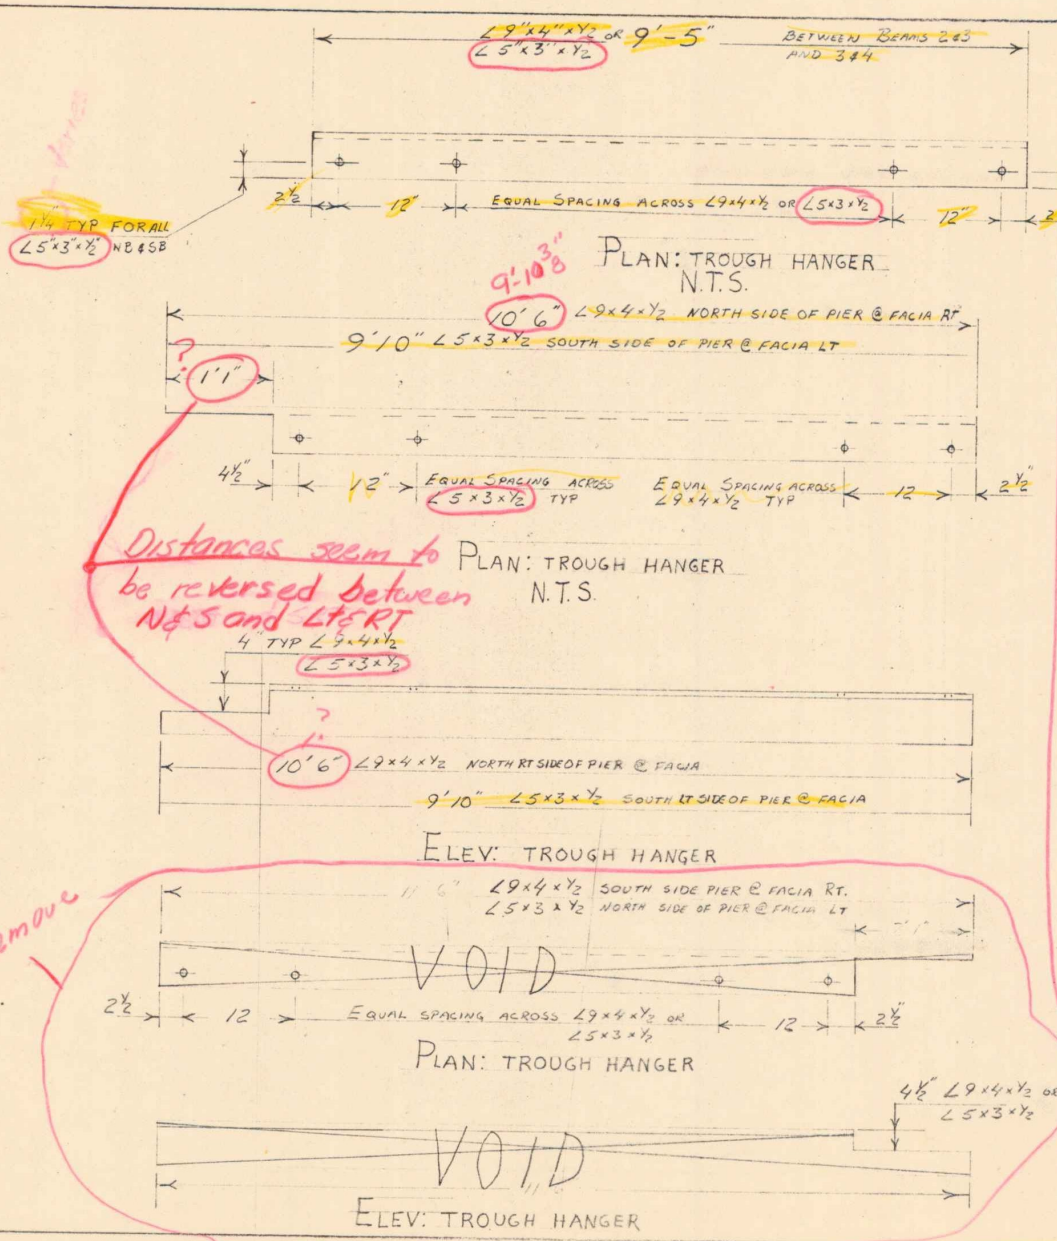 ∠9"x4"x½ OR 9'-5"
∠5"x3"x½
BETWEEN BEAMS 2&3
AND 3&4
2½
12"
EQUAL SPACING ACROSS ∠9x4x½ OR ∠5x3x½
12"
2
1¼" TYP FOR ALL
∠5"x3"x½" NB&SB
PLAN: TROUGH HANGER
N.T.S.
9'-10⅜"
10'6" ∠9x4x½ NORTH SIDE OF PIER @ FACIA RT
9'10" ∠5x3x½ SOUTH SIDE OF PIER @ FACIA LT
?
1'1"
4½"
12"
EQUAL SPACING ACROSS
∠5x3x½ TYP
EQUAL SPACING ACROSS
∠9x4x½ TYP
12
2½"
Distances seem to
be reversed between
N&S and Lt&RT
PLAN: TROUGH HANGER
N.T.S.
4" TYP ∠9x4x½
∠5x3x½
?
10'6" ∠9x4x½ NORTH RT SIDE OF PIER @ FACIA
9'10" ∠5x3x½ SOUTH LT SIDE OF PIER @ FACIA
ELEV: TROUGH HANGER
∠9x4x½ SOUTH SIDE PIER @ FACIA RT.
∠5x3x½ NORTH SIDE OF PIER @ FACIA LT
VOID
2½
12
EQUAL SPACING ACROSS ∠9x4x½ OR
∠5x3x½
12
2½"
PLAN: TROUGH HANGER
4½" ∠9x4x½ OR
∠5x3x½
VOID
ELEV: TROUGH HANGER